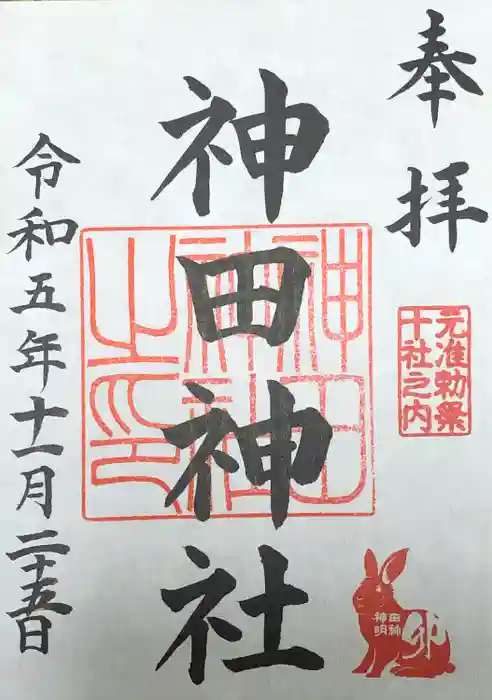 奉拝
元准勅祭
十社之内
神田神社
神田
神社
之印
令和五年十一月二十五日
神田
明神
卯